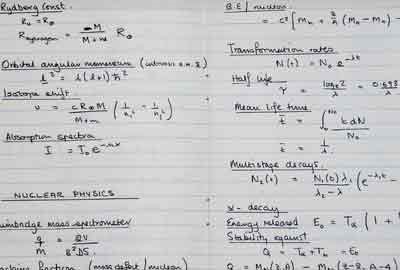 Rydberg Const.
R∞ = R∞
R hydrogen = M / M+m R∞
Orbital angular momentum
l² = l(l+1)ħ²
Isotope shift.
υ = cR∞M / M+m (1/n₁² - 1/n₂²)
Absorption spectra
I = I₀e^-nαx
NUCLEAR PHYSICS
Bainbridge mass spectrometer
q/M = 2V / B²DS
(mass defect/nucleon)
B.E / nucleon
= c² [Mn + Z/A (MH - Mn) -
Transformation rates
N(t) = N₀ e^-λt
Half life
τ = loge2 / λ = 0.693 / λ
Mean life time
t̄ = ∫₀^N₀ t dN / N₀
t̄ = 1/λ
Multistage decays.
N₂(t) = N₁(0)λ₁ / λ₂ - λ₁ (e^-λ₁t -
α - decay
Energy released E₀ = Tα (1 +
Stability against
Q = Tα + Tb = E₀
Q = M (Z,A) - M (Z-2, A-4)